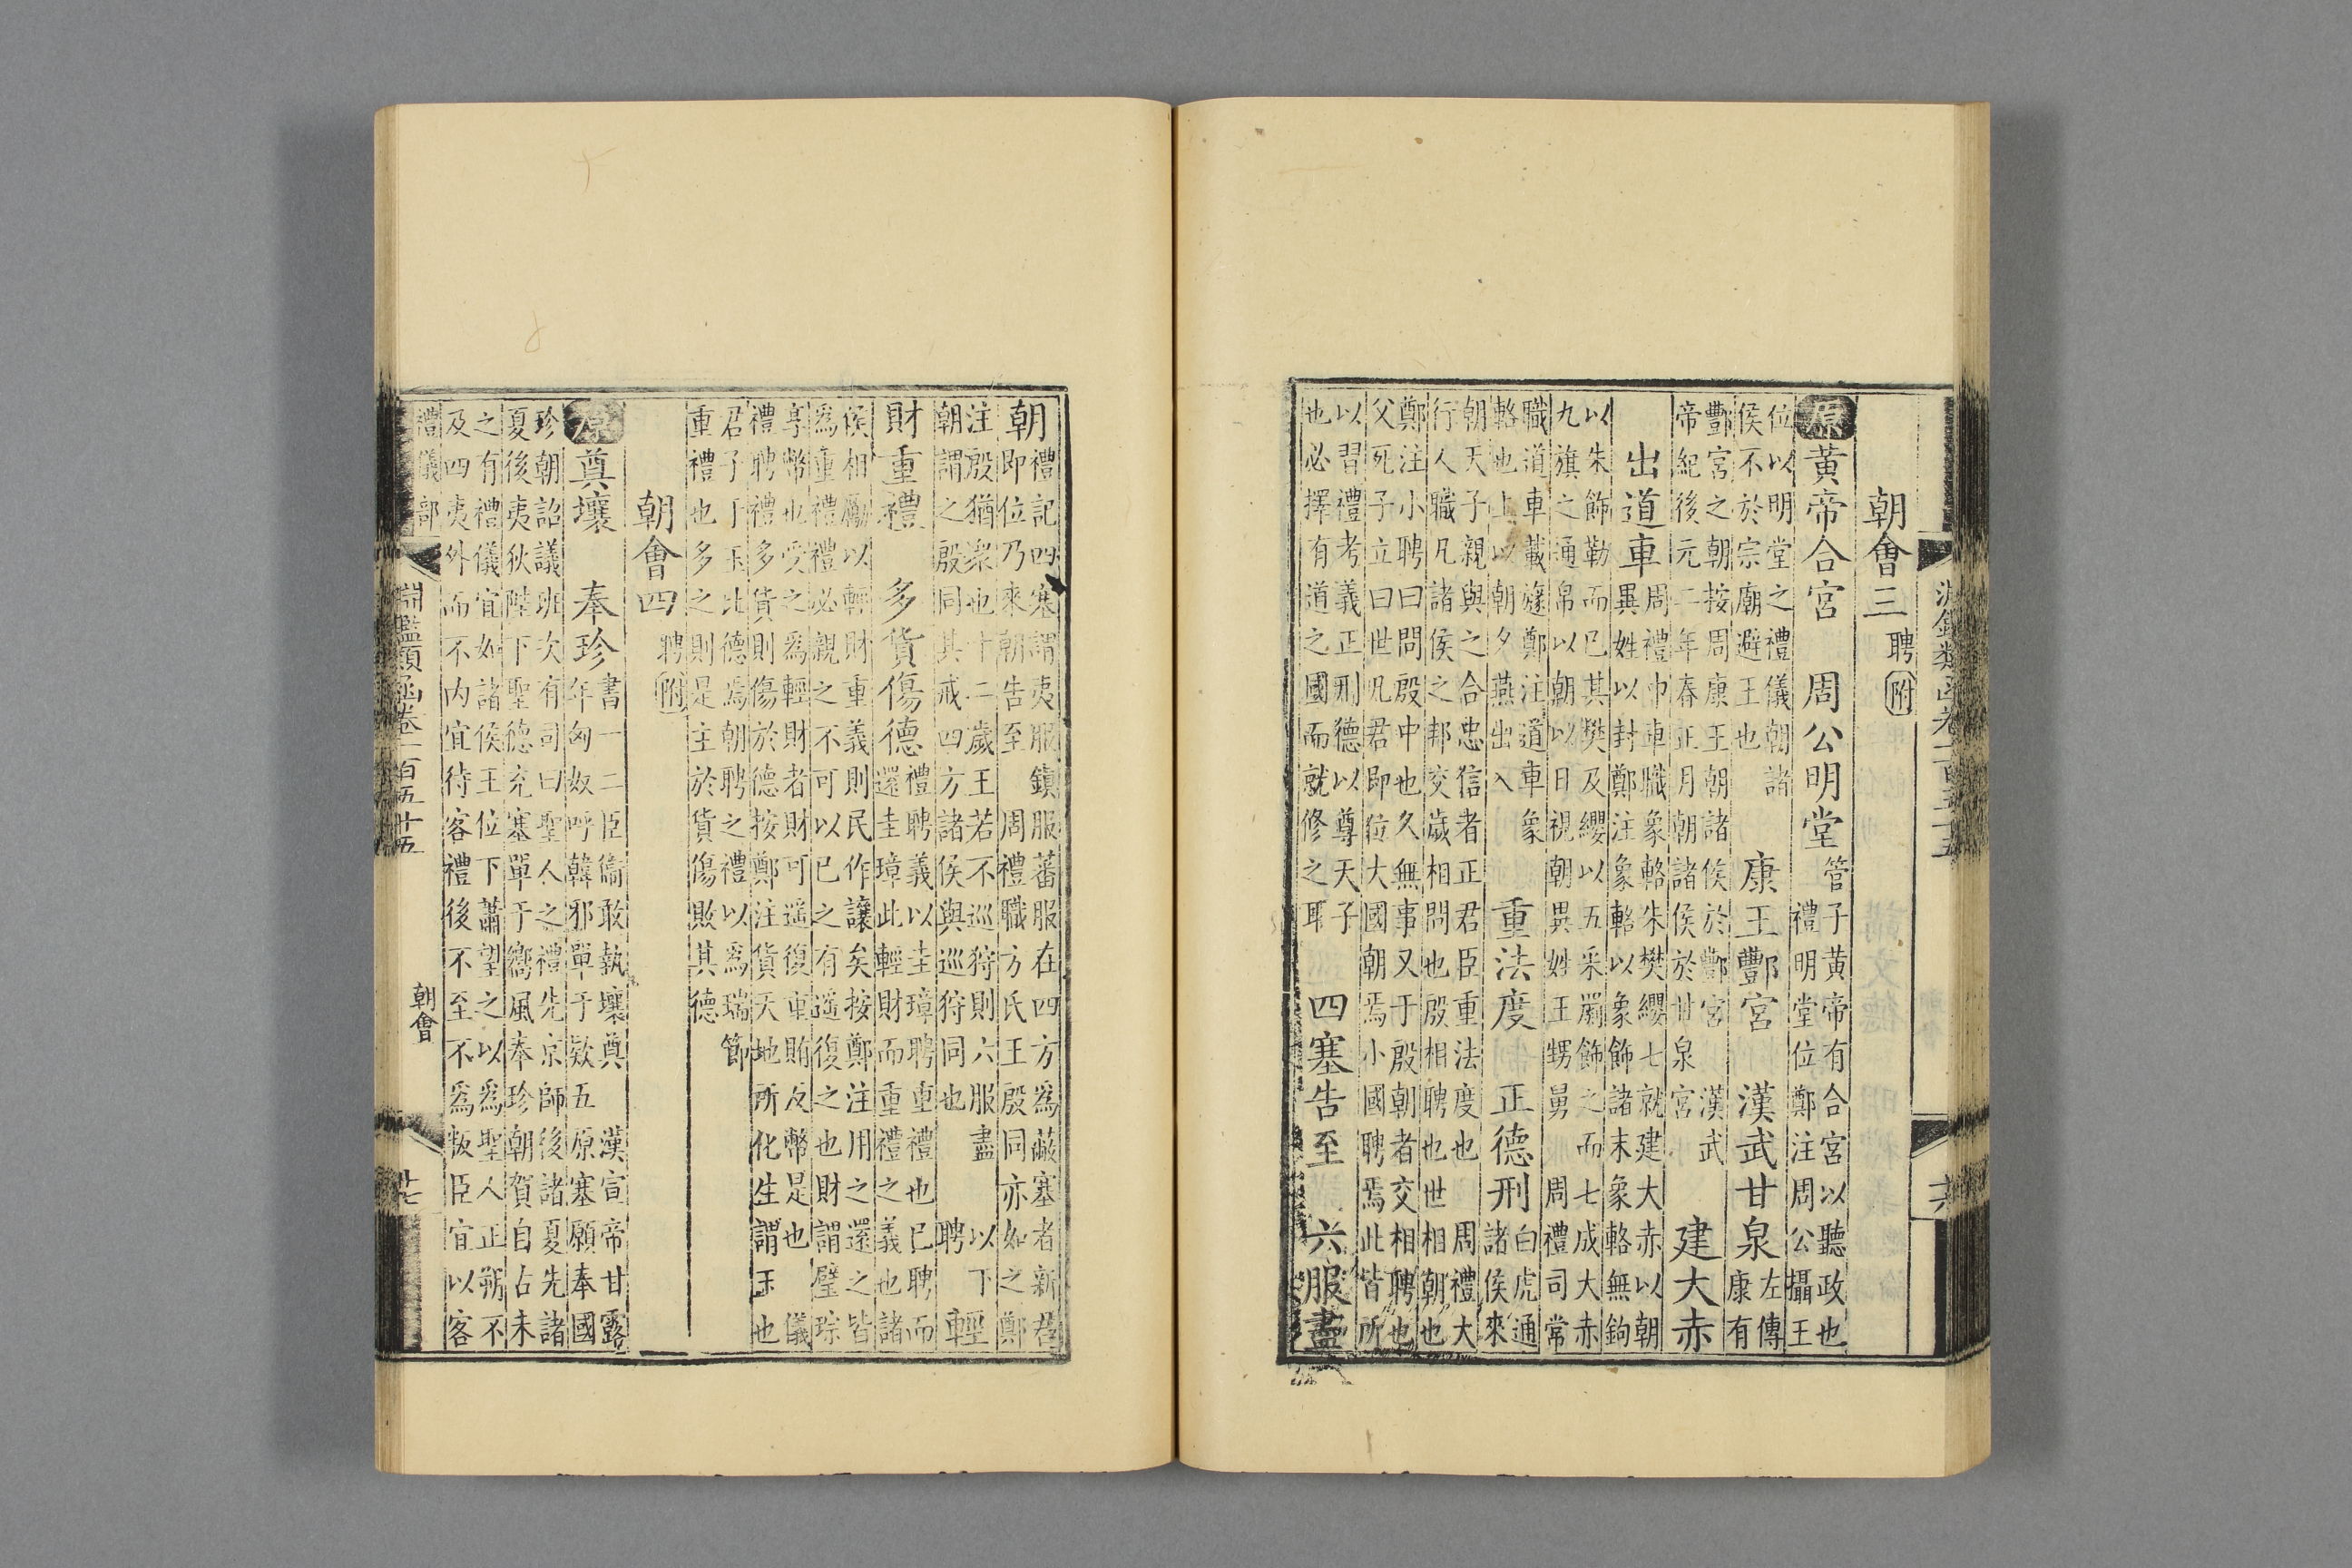 淵鑑類函卷一百五十五
十六
朝會三 聘附
原 黃帝合宮 周公明堂 管子黃帝有合宮以聽政也
禮明堂位鄭注周公攝王
位以明堂之禮儀朝諸
侯不於宗廟避王也 康王酆宮 漢武甘泉 左傳
康有
酆宮之朝按周康王朝諸侯於酆宮 漢武
帝紀後元二年春正月朝諸侯於甘泉宮 建大赤
出道車 周禮巾車職象輅朱樊纓七就建大赤以朝
異姓以封鄭注象輅以象飾諸末象輅無鉤
以朱飾勒而已其樊及纓以五采罽飾之而七成大赤
九旗之通帛以朝以日視朝異姓王甥舅 周禮司常
職道車載旞鄭注道車象
輅也上以朝夕燕出入 重法度 正德刑 白虎通
諸侯來
朝天子親與之合忠信者正君臣重法度也 周禮大
行人職凡諸侯之邦交歲相問也殷相聘也世相朝也
鄭注小聘曰問殷中也久無事又于殷朝者交相聘也
父死子立曰世凡君即位大國朝焉小國聘焉此皆所
以習禮考義正刑德以尊天子
也必擇有道之國而就修之耳 四塞告至 六服盡
朝 禮記四塞謂夷服鎮服蕃服在四方爲蔽塞者新君
即位乃來朝告至 周禮職方氏王殷同亦如之鄭
注殷猶衆也十二歲王若不巡狩則六服盡
朝謂之殷同其戒四方諸侯與巡狩同也 以下聘 輕
財重禮 多貨傷德 禮聘義以圭璋聘重禮也已聘而
還圭璋此輕財而重禮之義也諸
侯相勵以輕財重義則民作讓矣按鄭注用之還之皆
爲重禮禮必親之不可以已之有遥復之也財謂璧琮
享幣也受之爲輕財者財可遥復重賄反幣是也 儀
禮聘禮多貨則傷於德按鄭注貨天地所化生謂玉也
君子于玉比德焉朝聘之禮以爲瑞節
重禮也多之則是主於貨傷敗其德
朝會四 聘附
原 奠壤 奉珍 書一二臣衞敢執壤奠 漢宣帝甘露
年匈奴呼韓邪單于欵五原塞願奉國
珍朝詔議班次有司曰聖人之禮先京師後諸夏先諸
夏後夷狄陛下聖德充塞單于嚮風奉珍朝賀自古未
之有禮儀宜如諸侯王位下蕭望之以爲聖人正朔不
及四夷外而不内宜待客禮後不至不爲叛臣宜以客
禮儀部
淵鑑類函卷一百五十五
朝會
十七